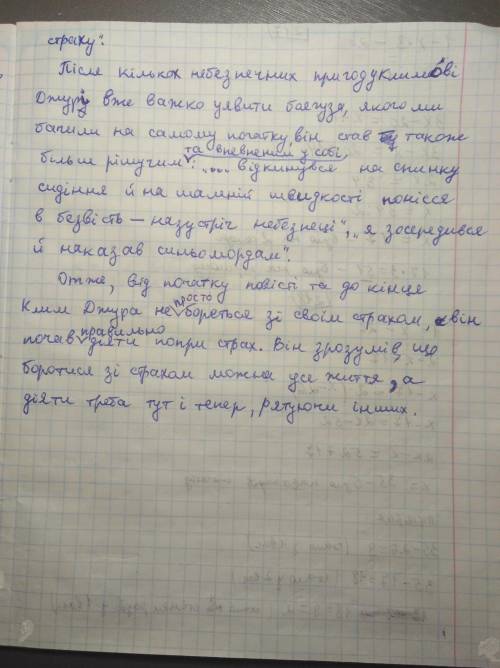 страху".
Після кількох небезпечних пригод у Климові
Джурі вже важко уявити боягуза, якого ми
бачили на самому початку, він став також
більш рішучим та впевненим у собі: "... відкинувся на спинку
сидіння й на шаленій швидкості понісся
в безвість — назустріч небезпеці", "я зосередився
й наказав синьомордам".
Отже, від початку повісті та до кінця
Клим Джура не просто бореться зі своїм страхом, він
почав правильно діяти попри страх. Він зрозумів, що
боротися зі страхом можна усе життя, а
діяти треба тут і тепер, рятуючи інших.